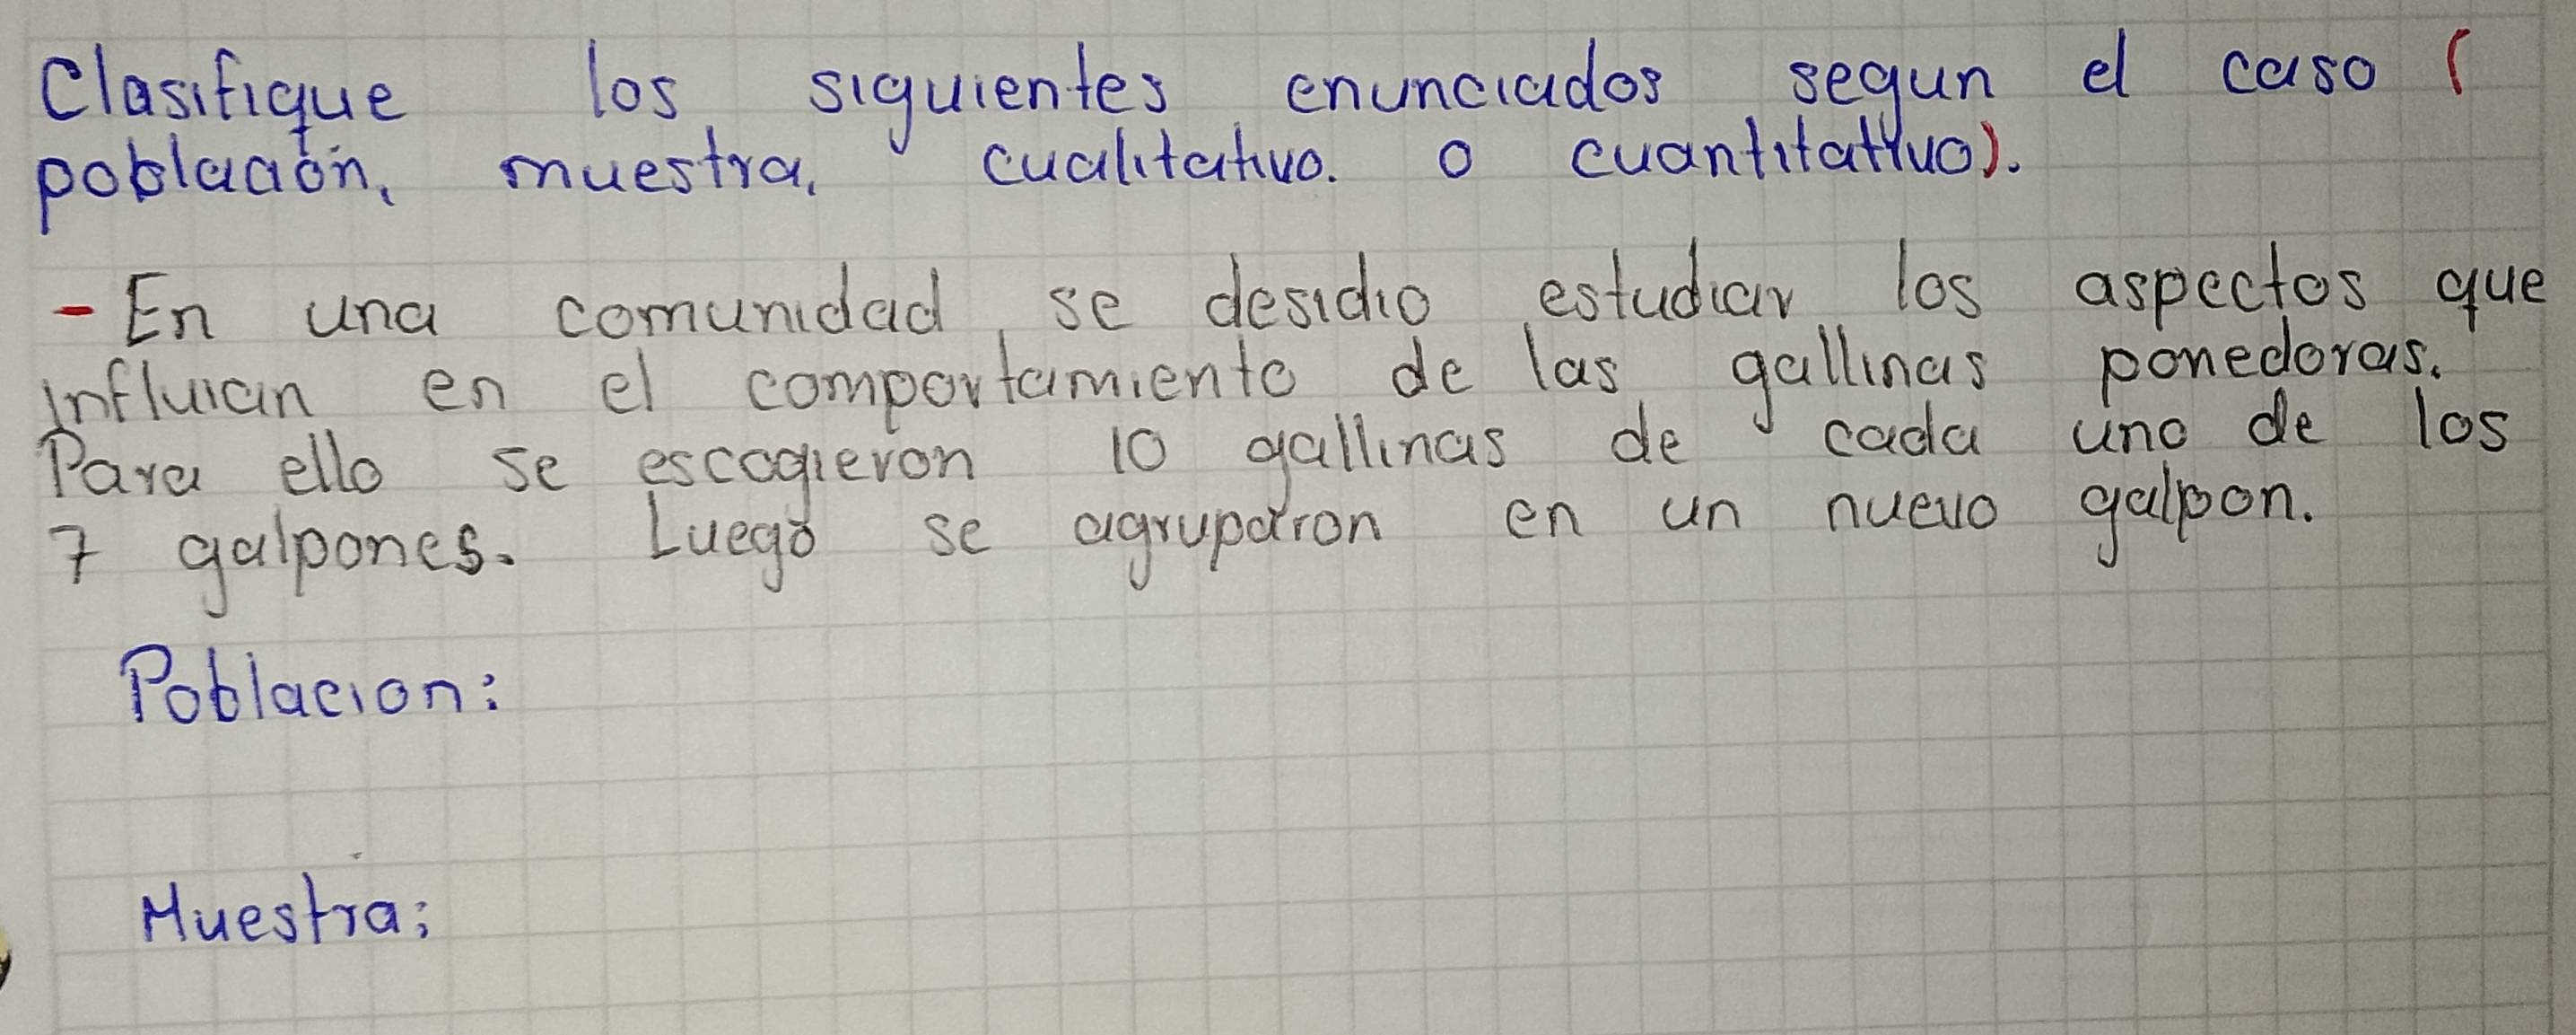 Clasifique los siguientes enunciados segun el caso (
población, muestra, cualitativo. o cuantitativo).
- En una comunidad se desidio estudiar los aspectos que
influian en el comportamiento de las gallinas ponedoras.
Para ello se escogieron 10 gallinas de cada uno de los
7 galpones. Luego se agruparon en un nuevo galpon.
Poblacion:
Muestra: